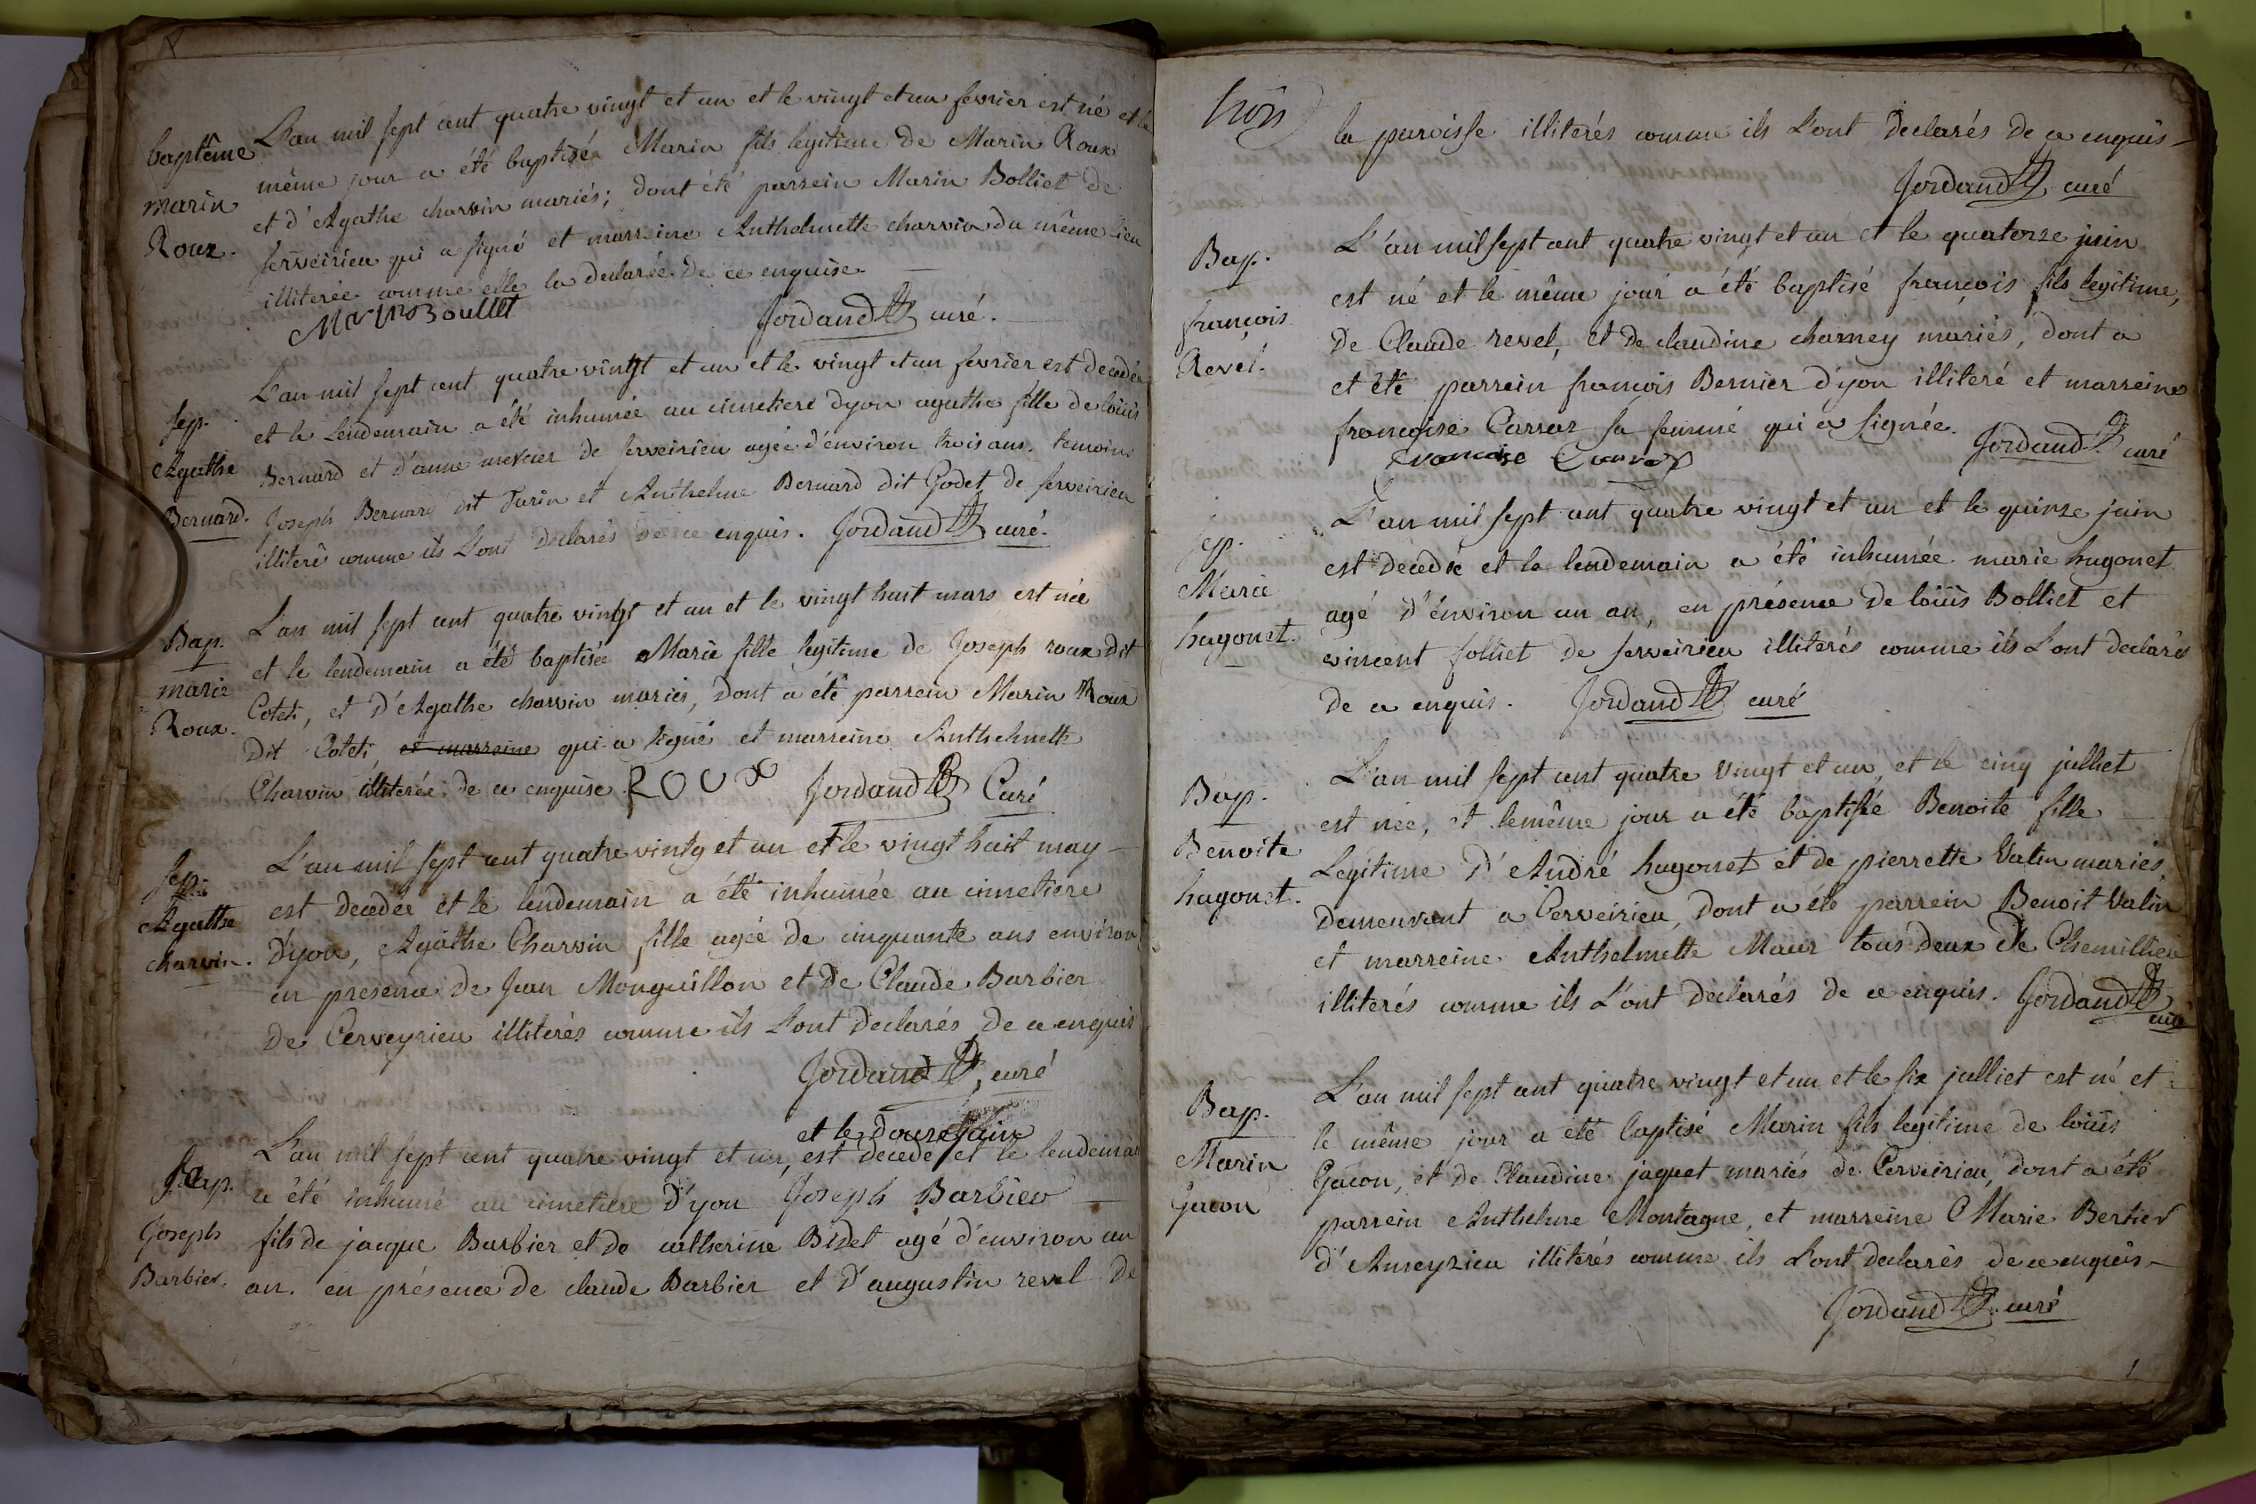 baptême
marin
Roux.
L'an mil sept cent quatre vingt et un et le vingt et un fevrier est né et le
même jour a été baptisé Marin fils legitime de Marin Roux
et d'Agathe charvin mariés; dont été parrein Marin Bolliet de
serveirieu qui a signé et marreine Anthelmette charvin du même lieu
illiterée comme elle la declarée de ce enquise.
Marin Boullet Jordand curé.
sep.
Agathe
Bernard.
L'an mil sept cent quatre vintgt et un et le vingt et un fevrier est decedée
et le lendemain a été inhumée au cimetiere dyon agathe fille de loüis
Bernard et d'anne mercier de serveirieu agée d'environ trois ans. temoins
Joseph Bernard dit Turin et Anthelme Bernard dit Godet de serveirieu
illiteré comme ils L'ont declarés de ce enquis. Jordand curé.
Bap.
marie
Roux.
L'an mil sept cent quatre vintgt et un et le vingt huit mars est née
et le lendemain a été baptisée Marie fille legitime de Joseph roux dit
Coteti, et d'Agathe charvin mariés, dont a été parrein Marin Roux
dit Coteti, et marreine qui a signé et marreine Anthelmette
Charvin illiterée de ce enquise. ROUX Jordand Curé
sep.
Agathe
charvin.
L'an mil sept cent quatre vintg et un et le vingt huit may
est decedée et le lendemain a été inhumée au cimetiere
d'yon, Agathe Charvin fille agée de cinquante ans environ
en presence de Jean Monguillon et de Claude Barbier
de Cerveyrieu illiterés comme ils L'ont declarés de ce enquis
Jordand, curé
et le douze juin
sep.
Joseph
Barbier.
L'an mil sept cent quatre vingt et un, est decede et le lendemain
a été inhumé au cimetiere d'yon Joseph Barbier
fils de jacque Barbier et de catherine Bizet agé d'environ un
an. en présence de claude Barbier et d'augustin revel de
trois
la paroisse illiterés comme ils L'ont declarés de ce enquis
Jordand curé
Bap.
françois
Revel.
L'an mil sept cent quatre vingt et un et le quatorze juin
est né et le même jour a été baptisé françois fils legitime,
de Claude revel, et de claudine charney mariés, dont a
et été parrein francois Bernier d'yon illiteré et marreine
francoise Carraz sa femme qui a signée. Jordand curé
francoise Carraz
sep.
Marie
hugonet.
L'an mil sept cent quatre vingt et un et le quinze juin
est décedée et le lendemain a été inhumée marie hugonet
agé d'environ un an, en présence de loüis Bolliet et
vincent folliet de serveirieu illiterés comme ils L'ont declarés
de ce enquis. Jordand curé
Bap.
Benoite
hugonet.
L'an mil sept cent quatre vingt et un, et le cinq julliet
est née, et le même jour a été baptisée Benoite fille
Legitime d'André hugonet et de pierrette Vatin mariés,
demeurant a Cerveirieu, dont a été parrein Benoit Vatin
et marreine Anthelmette Maur tous deux de Chemillieu
illiterés comme ils L'ont declarés de ce enquis. Jordand
curé
Bap.
Marin
Gacon
L'an mil sept cent quatre vingt et un et le six julliet est né et
le même jour a été baptisé Marin fils legitime de loüis
Gacon, et de Claudine jaquet mariés de Cerveirieu, dont a été
parrein Anthelme Montagne, et marreine Marie Bertier
d'Ameyzieu illiterés comme ils L'ont declarés de ce enquis
Jordand curé